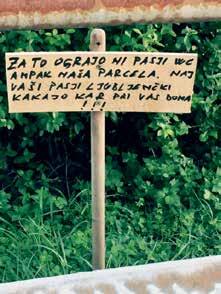 ZA TO OGRAJO NI PASJI WC
AMPAK NAŠA PARCELA. NAJ
VAŠI PASJI LJUBLJENČKI
KAKAJO KAR PRI VAS DOMA
! ! !